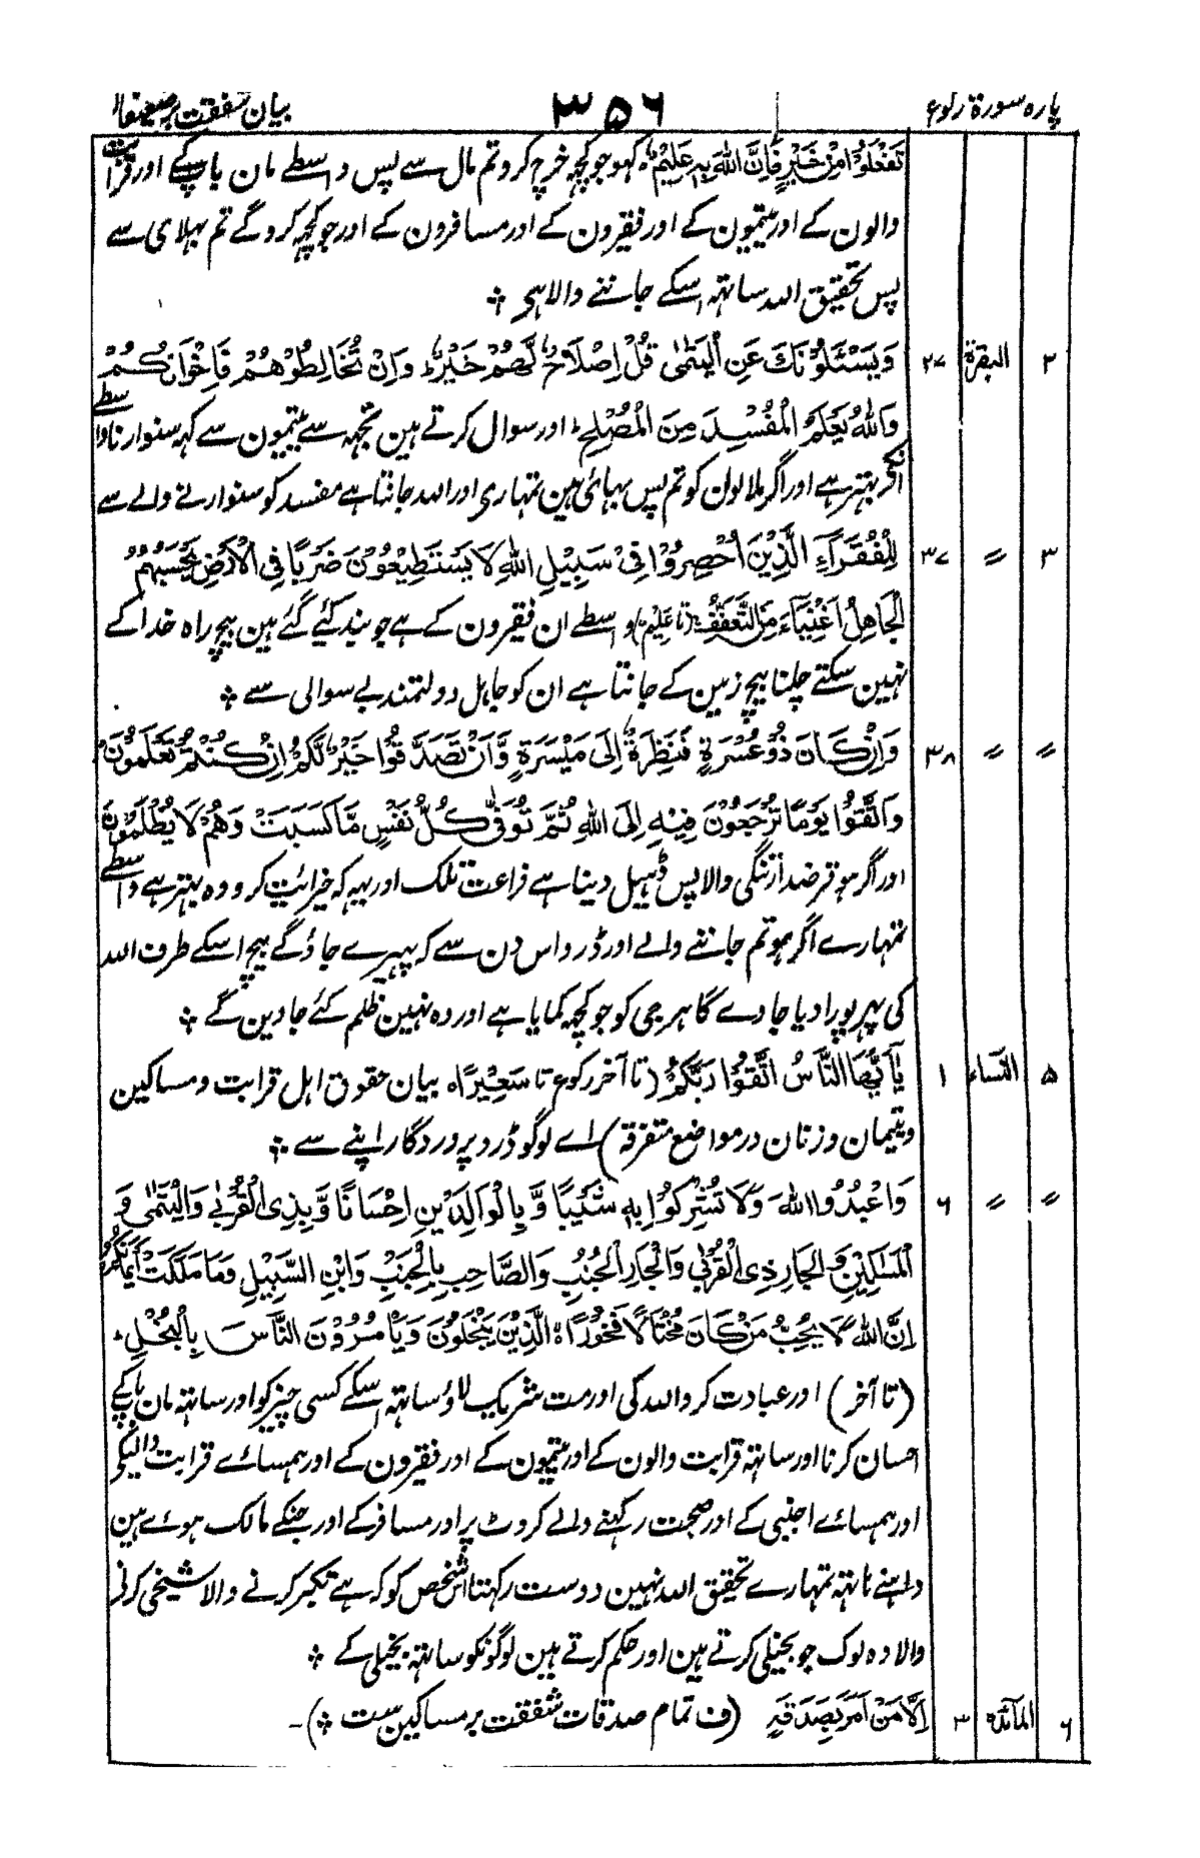 پارہ سورۃ رکوع ۳۵۶ بیان شفقت بر ضعیفان
تَفْعَلُوْا مِنْ خَيْرٍ فَاِنَّ اللّٰهَ بِهٖ عَلِيْمٌ ہ کہو جو کچہہ خرچ کرو تم مال سے پس واسطے مان باپکے اور قرابت
والون کے اور یتیمون کے اور فقیرون کے اور مسافرون کے اور جو کچہہ کروگے تم بہلای سے
پس تحقیق اللہ ساتہہ اسکے جاننے والا ہی ؞
۲ البقرۃ ۲۷ وَيَسْئَلُوْنَكَ عَنِ الْيَتٰمٰى قُلْ اِصْلَاحٌ لَّهُمْ خَيْرٌ وَاِنْ تُخَالِطُوْهُمْ فَاِخْوَانُكُمْ
وَاللّٰهُ يَعْلَمُ الْمُفْسِدَ مِنَ الْمُصْلِحِ ط اور سوال کرتے ہین تجہہ سے یتیمون سے کہہ سنوارنا واسطے
انکی بہتر ہے اور اگر ملا لو ان کو تم پس بہائی ہین تمہاری اور اللہ جانتا ہے مفسد کو سنوارنے والے سے
۳ 〃 ۳۷ لِلْفُقَرَآءِ الَّذِيْنَ اُحْصِرُوْا فِيْ سَبِيْلِ اللّٰهِ لَا يَسْتَطِيْعُوْنَ ضَرْبًا فِى الْاَرْضِ يَحْسَبُهُمُ
الْجَاهِلُ اَغْنِيَآءَ مِنَ التَّعَفُّفِ (تا عَلِيْمٌ) واسطے ان فقیرون کے ہے جو بند کئے گئے ہین بیچ راہ خدا کے
نہین سکتے چلنا بیچ زمین کے جانتا ہے ان کو جاہل دولتمند بے سوالی سے ؞
〃 〃 ۳۸ وَاِنْ كَانَ ذُوْ عُسْرَةٍ فَنَظِرَةٌ اِلٰى مَيْسَرَةٍ وَّاَنْ تَصَدَّقُوْا خَيْرٌ لَّكُمْ اِنْ كُنْتُمْ تَعْلَمُوْنَ
وَاتَّقُوْا يَوْمًا تُرْجَعُوْنَ فِيْهِ اِلَى اللّٰهِ ثُمَّ تُوَفّٰى كُلُّ نَفْسٍ مَّا كَسَبَتْ وَهُمْ لَا يُظْلَمُوْنَ
اور اگر ہو قرضدار تنگی والا پس ڈہیل دینا ہے فراعت تلک اور یہہ کہ خیرایت کرو وہ بہتر ہے واسطے
تمہارے اگر ہو تم جاننے والے اور ڈرو اس دن سے کہ پہیرے جاؤگے بیچ اسکے طرف اللہ
کی پہر پورا دیا جاوے گا ہر جی کو جو کچہہ کمایا ہے اور وہ نہین ظلم کئے جاوین گے ؞
۵ النساء ۱ يٰٓاَيُّهَا النَّاسُ اتَّقُوْا رَبَّكُمُ (تا آخر رکوع تا سَعِيْرًا ہ بیان حقوق اہل قرابت و مساکین
ویتیمان و زنان در مواضع متفرقۃ) اے لوگو ڈرو پروردگار اپنے سے ؞
〃 〃 ۶ وَاعْبُدُوا اللّٰهَ وَلَا تُشْرِكُوْا بِهٖ شَيْئًا وَّبِالْوَالِدَيْنِ اِحْسَانًا وَّبِذِى الْقُرْبٰى وَالْيَتٰمٰى وَ
الْمَسٰكِيْنِ وَالْجَارِ ذِى الْقُرْبٰى وَالْجَارِ الْجُنُبِ وَالصَّاحِبِ بِالْجَنْبِ وَابْنِ السَّبِيْلِ وَمَا مَلَكَتْ اَيْمَانُكُمْ
اِنَّ اللّٰهَ لَا يُحِبُّ مَنْ كَانَ مُخْتَالًا فَخُوْرًا ہ الَّذِيْنَ يَبْخَلُوْنَ وَيَاْمُرُوْنَ النَّاسَ بِالْبُخْلِ
(تا آخر) اور عبادت کرو اللہ کی اور مت شریک لاؤ ساتہہ اسکے کسی چیز کو اور ساتہہ مان باپکے
احسان کرنا اور ساتہہ قرابت والون کے اور یتیمون کے اور فقیرون کے اور ہمسائے قرابت والیکی
اور ہمسائے اجنبی کے اور صحبت رکہنے والے کروٹ پر اور مسافر کے اور جنکے مالک ہوئے ہین
داہنے ہاتہہ تمہارے تحقیق اللہ نہین دوست رکہتا اس شخص کو کہ ہے تکبر کرنے والا شیخی کرنی
والا وہ لوک جو بخیلی کرتے ہین اور حکم کرتے ہین لوگونکو ساتہہ بخیلی کے ؞
۶ المآئدہ ۳ اِلَّا مَنْ اَمَرَ بِصَدَقَةٍ (ف تمام صدقات شفقت بر مساکین ست ؞)۔